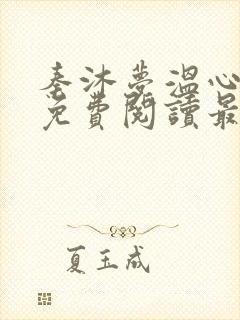 秦沐夢溫心
免費閱讀最
夏玉成